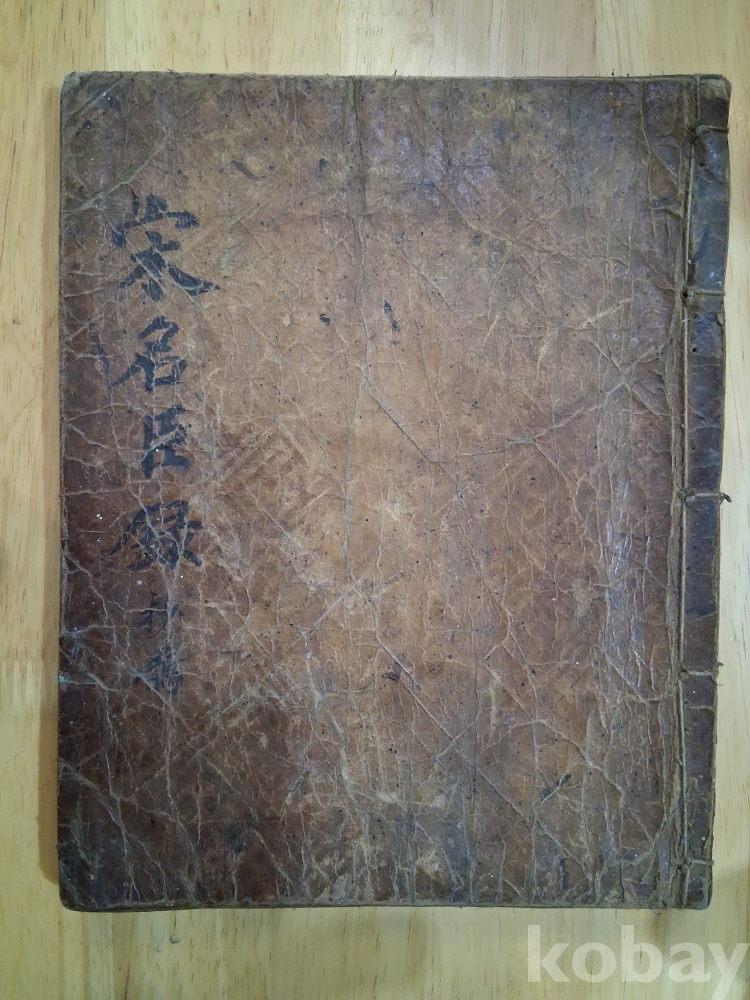 宋名臣錄
kobay